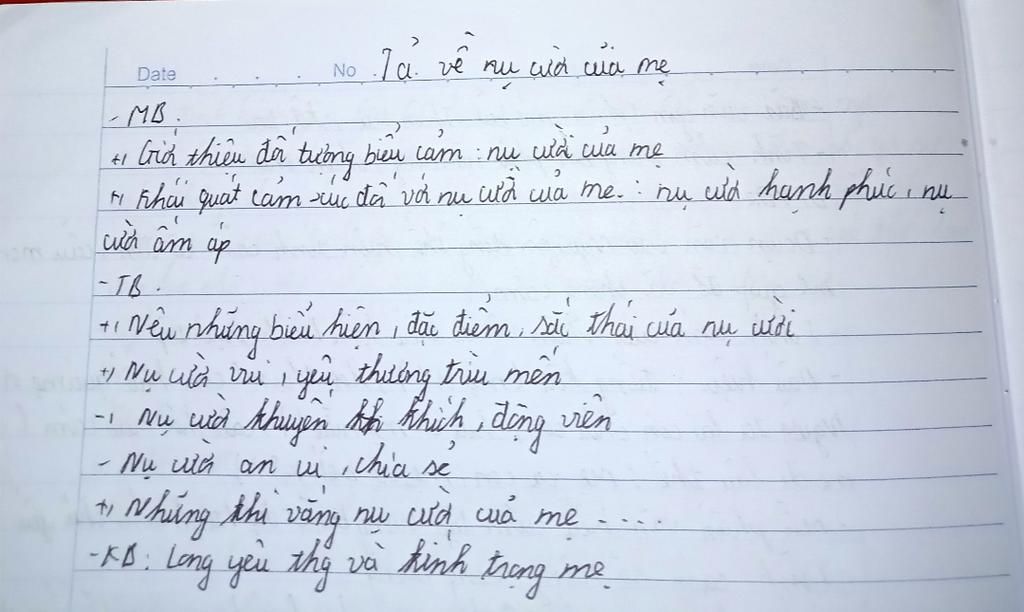 Date . . . No . Tả về nụ cười của mẹ
- MB.
+, Giới thiệu đối tượng biểu cảm : nụ cười của mẹ
+, Khái quát cảm xúc đối với nụ cười của mẹ : nụ cười hạnh phúc, nụ
cười ấm áp
- TB.
+, Nêu những biểu hiện, đặc điểm, sắc thái của nụ cười
+, Nụ cười vui, yêu thương trìu mến
-, Nụ cười khuyến khích, động viên
- Nụ cười an ủi, chia sẻ
+, Những khi vắng nụ cười của mẹ ....
- KB: Lòng yêu thg và kính trọng mẹ